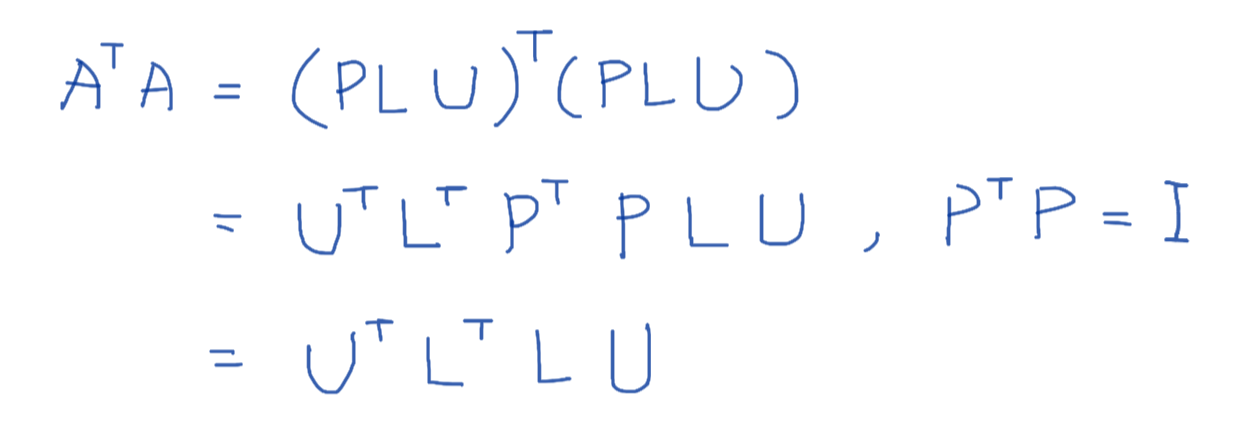 Aᵀ A = (PLU)ᵀ(PLU)
= Uᵀ Lᵀ Pᵀ P L U , Pᵀ P = I
= Uᵀ Lᵀ L U